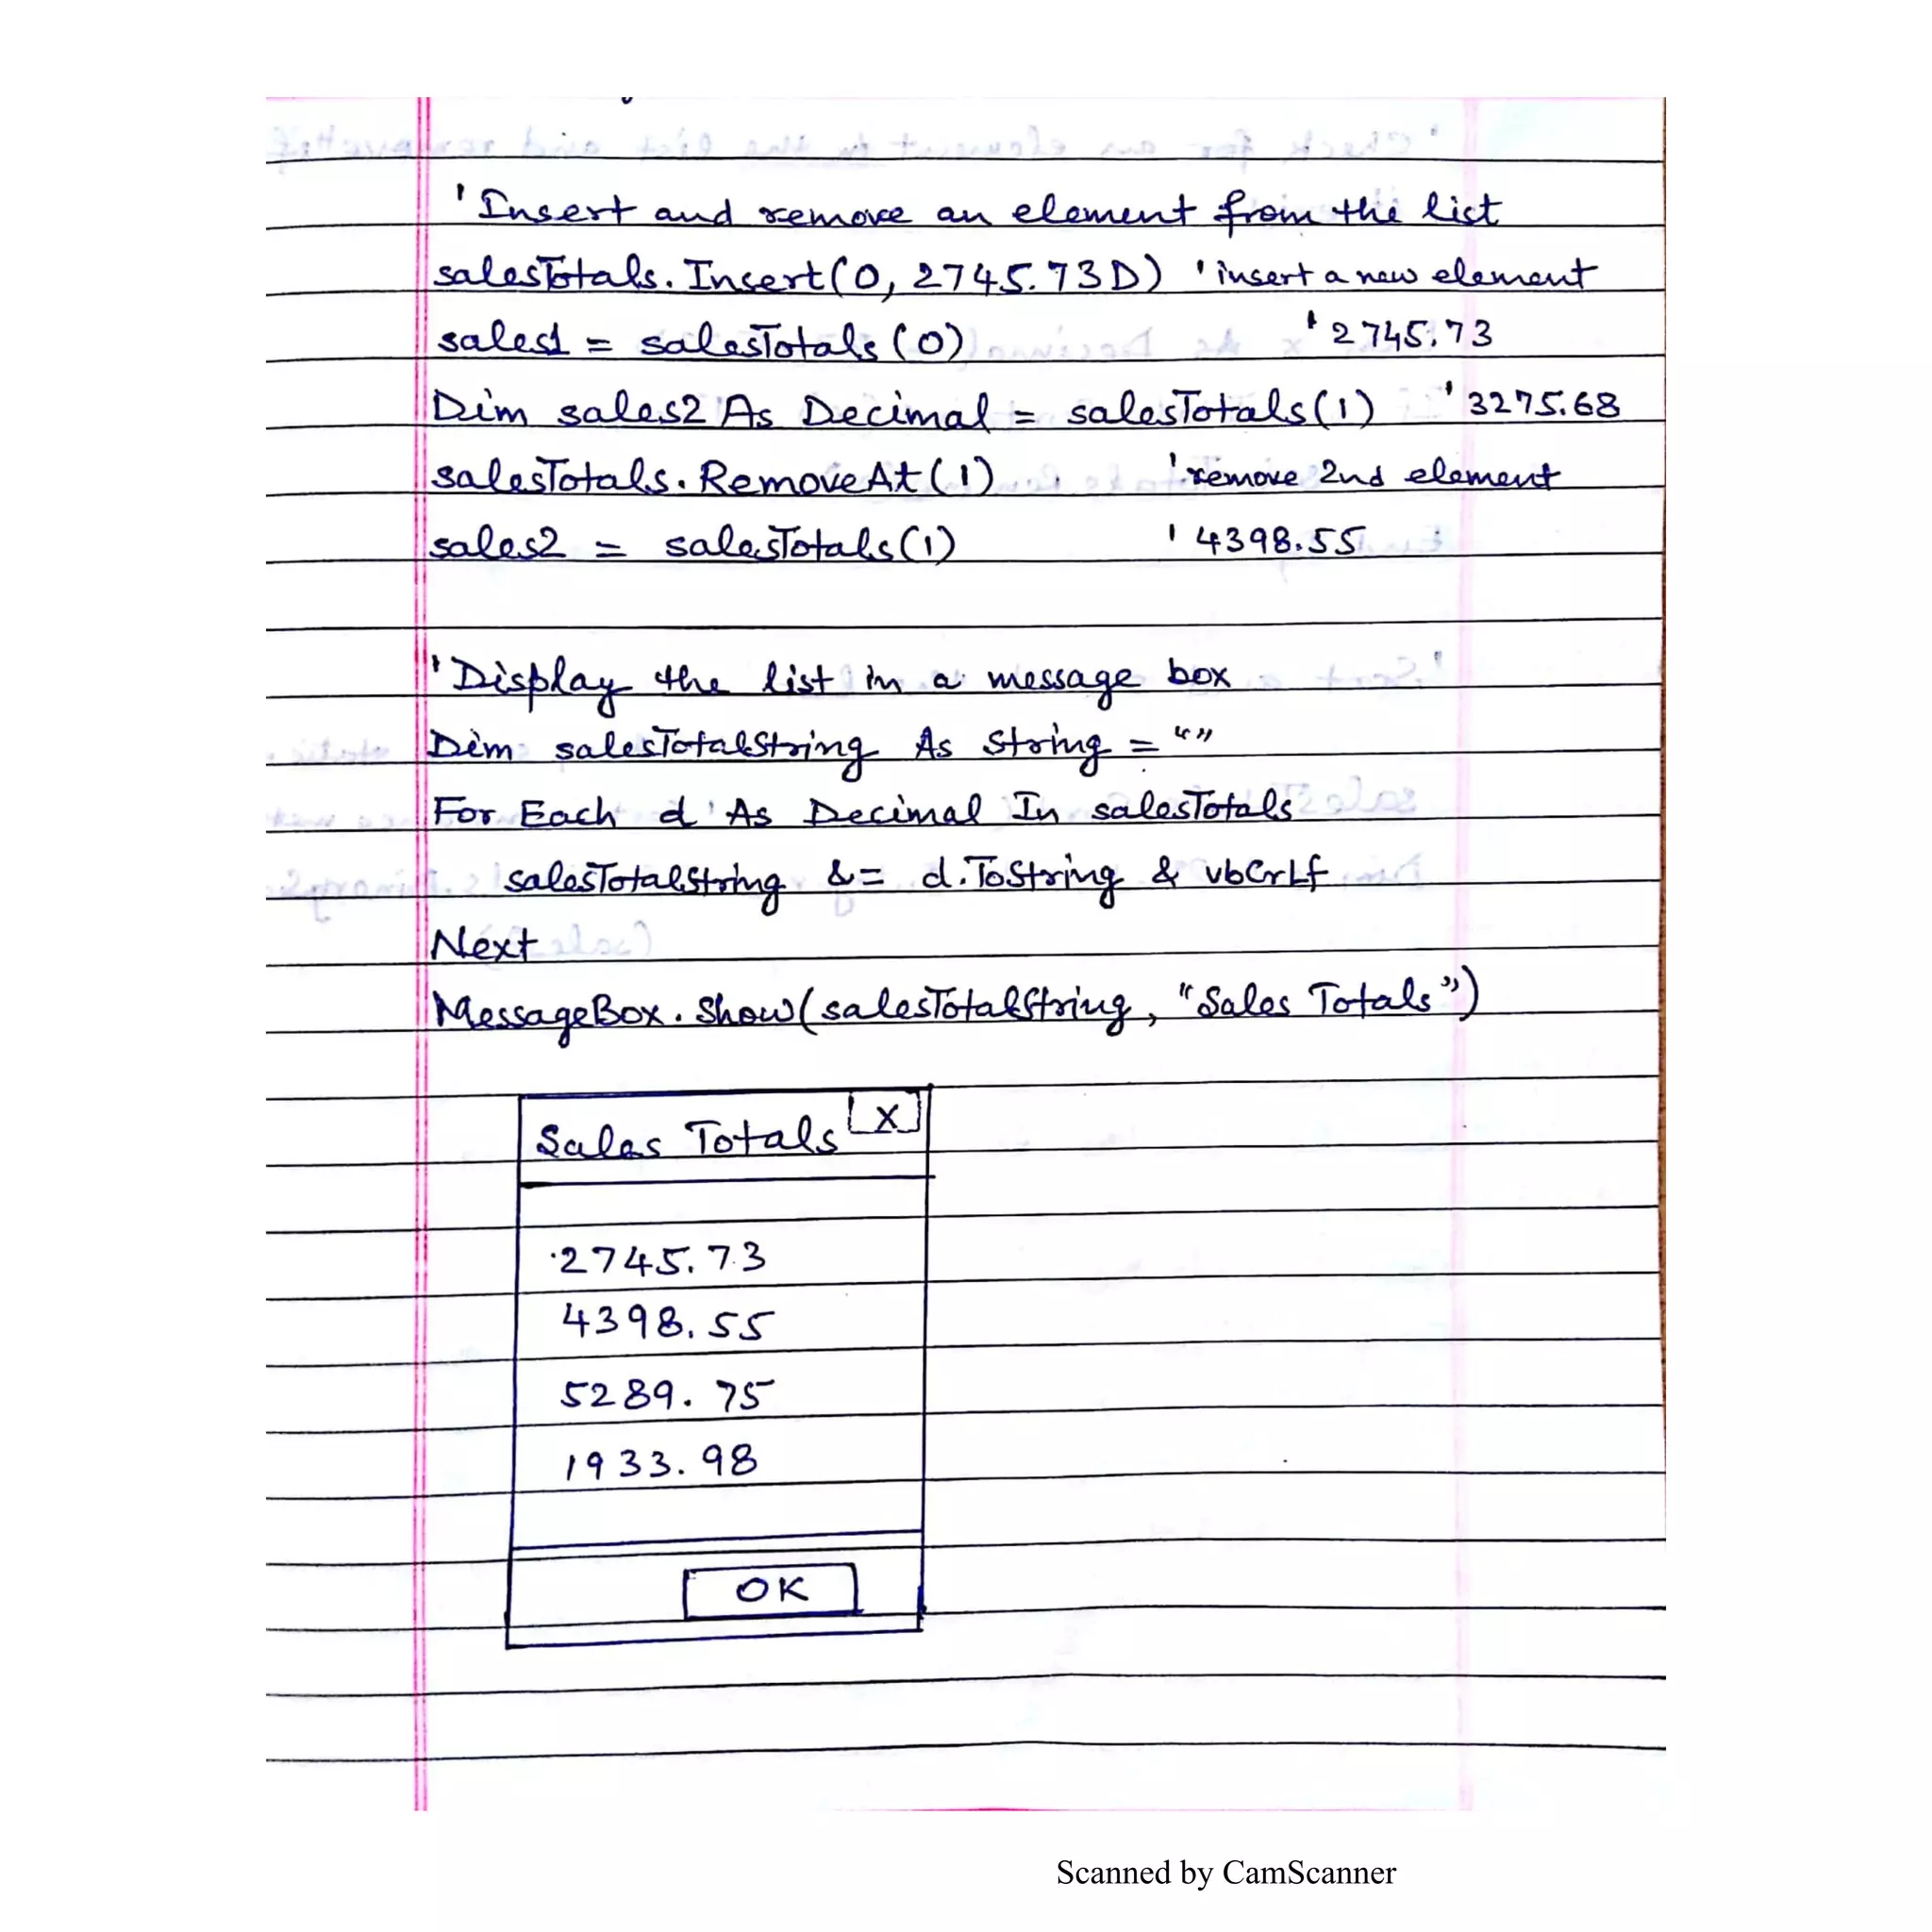 'Insert and remove an element from the list
salesTotals.Insert(0, 2745.73D) 'insert a new element
sales1 = salesTotals(0) '2745.73
Dim sales2 As Decimal = salesTotals(1) '3275.68
salesTotals.RemoveAt(1) 'remove 2nd element
sales2 = salesTotals(1) '4398.55
'Display the list in a message box
Dim salesTotalString As String = “”
For Each d As Decimal In salesTotals
salesTotalString &= d.ToString & vbCrLf
Next
MessageBox.Show(salesTotalString, "Sales Totals")
Sales Totals X
2745.73
4398.55
5289.75
1933.98
OK
Scanned by CamScanner